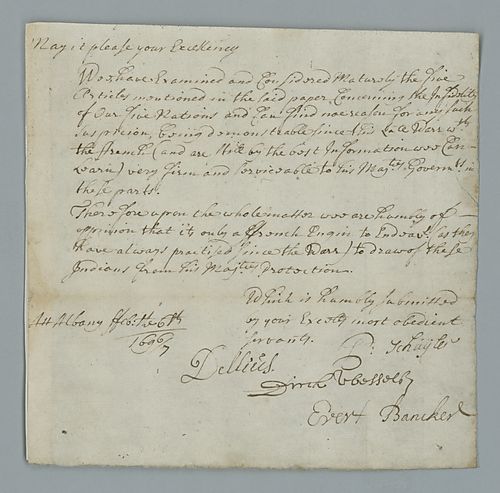 May it please your Excelency
We have Examined and Considered Maturely the five
Articles mentioned in the said paper Concerning the Infidelity
of Our five Nations and Can find noe reason for any such
suspicion, being demonstrable since this late Warr wth
the french (and are still by the best Information we Can
learn) very firm and serviceable to his Majties Governmt in
these parts.
Therefore upon the whole matter we are humbly of
oppinion that its only a ffrench Engin to Endeavr (as they
have always practised since the Warr) to draw of these
Indians from his Majties Protection.
Which is humbly submitted
by your Excelcys most obedient
servants.
Att Albany ffeb: the 6th
1696/7
P: Schuyler
Dellius.
Dirck Wessels
Evert Bancker